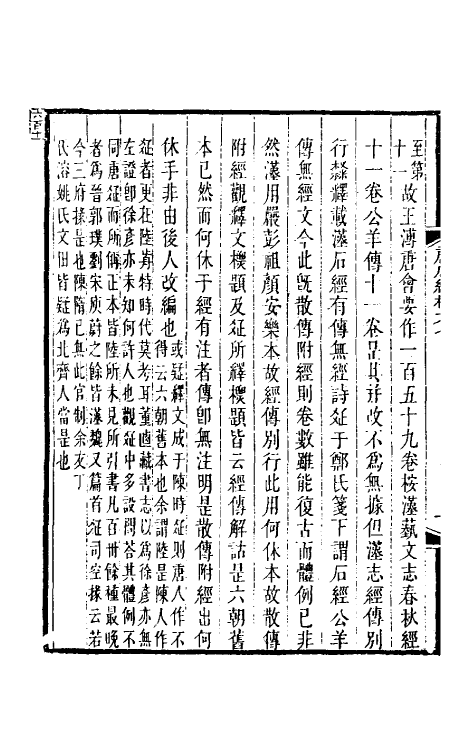 至第
十一
故王溥唐會要作一百五十九卷桉漢蓺文志春秋經
十一卷公羊傳十一卷是其幷改不爲無據但漢志經傳別
行隸釋載漢石經有傳無經詩疏于鄭氏箋下謂石經公羊
傳無經文今此旣散傳附經則卷數雖能復古而體例已非
然漢用嚴彭祖顏安樂本故經傳別行此用何休本故散傳
附經觀釋文標題及疏所釋標題皆云經傳解詁是六朝舊
本已然而何休于經有注者傳卽無注明是散傳附經出何
休手非由後人改編也
或疑釋文成于陳時疏則唐人作不
得云六朝舊本也余謂陸是陳人作
疏者更在陸前特時代莫考耳董逌藏書志以爲徐彥亦無
左證卽徐彥亦未知何許人也觀疏中多設問荅其體例不
同唐疏而所偁正本皆陸所未見所引書凡百卌餘種最晚
者爲晉郭璞劉宋庾蔚之餘皆漢魏又篇首疏司空掾云若
今三府掾是也陳隋已無此官制余友丁
氏溶姚氏文田皆疑爲北齊人當是也